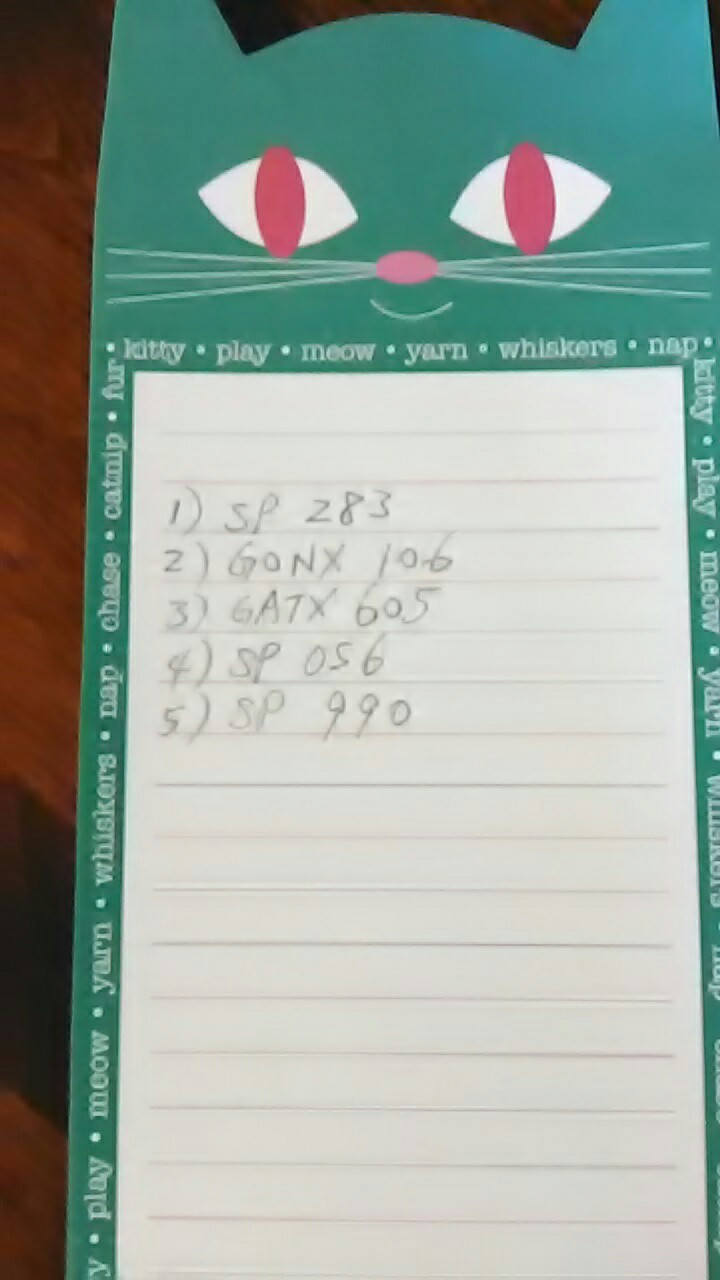 kitty • play • meow • yarn • whiskers • nap •
kitty • play • meow • yarn • whiskers • nap
play • meow • yarn • whiskers • nap • chase • catnip • fur •
1) SP 283
2) GONX 106
3) GATX 605
4) SP 056
5) SP 990